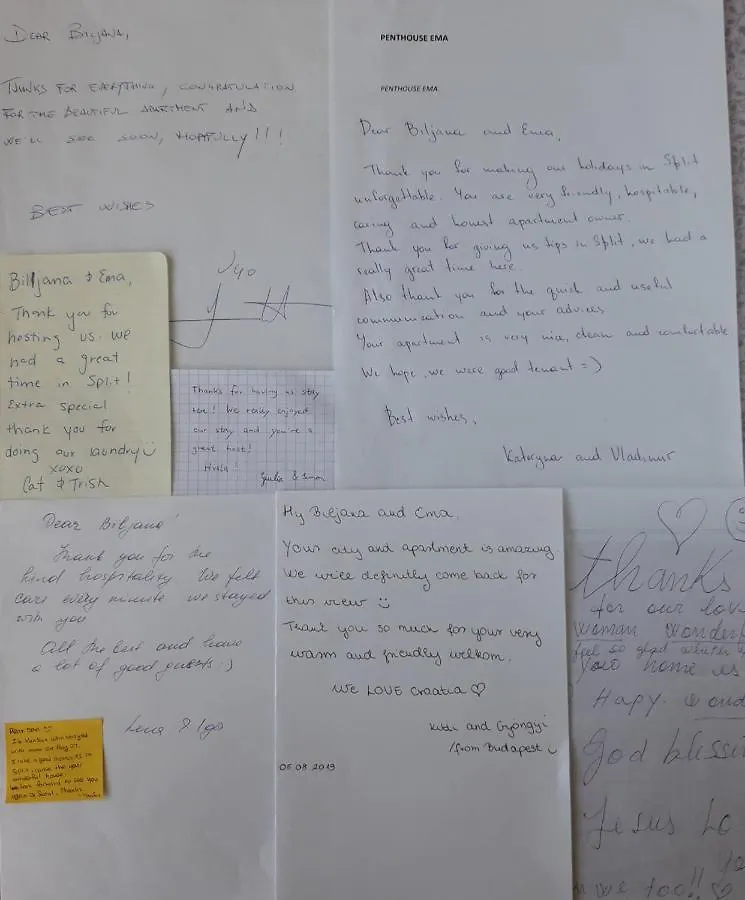 DEAR BILJANA,
THANKS FOR EVERYTHING, CONGRATULATION
FOR THE BEAUTIFUL APARTMENT AND
WE'LL SEE SOON, HOPFULLY!!!
BEST WISHES
PENTHOUSE EMA
PENTHOUSE EMA
Dear Biljana and Ema,
Thank you for making our holidays in Split
unforgettable. You are very friendly, hospitable,
caring and honest apartment owner.
Thank you for giving us tips in Split, we had a
really great time here.
Also thank you for the quick and useful
communication and your advices
Your apartment is very nice, clean and comfortable.
We hope, we were good tenant =)
Best wishes,
Kateryna and Vladimir
Billjana & Ema,
Thank you for
hosting us. We
had a great
time in Split!
Extra special
thank you for
doing our laundry
xoxo
Cat & Trish
Thanks for having us stay
We really enjoyed
our stay and you're a
great host!
Hvala!
Giulia &
Dear Biljana!
Thank you for the
kind hospitality. We felt
care every minute we stayed
with you
All the best and have
a lot of good guests :)
Lena & Igor
Hy Biljana and Ema,
Your city and apartment is amazing.
We will definitly come back for
this view
Thank you so much for your very
warm and friendly welkom.
We LOVE Croatia
and Gyöngyi
/from Budapest
05 08 2019
thanks
for our
woman wonderf
feel so glad
your home is
Hapy
God blessi
Jesus Lo
we too!!